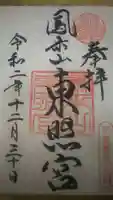 奉拝
鳳来山東照宮
令和二年十二月三十日